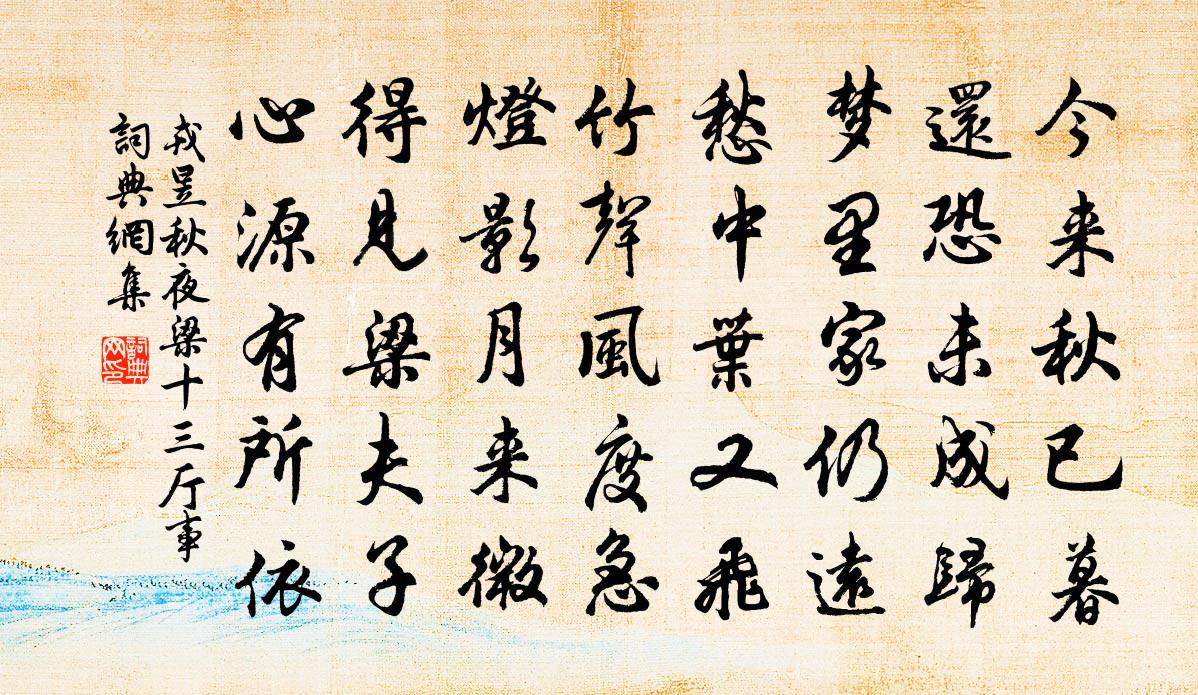 今来秋已暮
還恐未成歸
梦里家仍遠
愁中葉又飛
竹聲風度急
燈影月来微
得見梁夫子
心源有所依
戎昱秋夜梁十三厅事
詞典網集
詞典網印